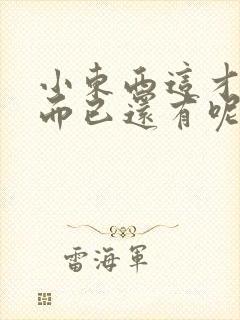 小東西這才
而已還有呢
雷海軍